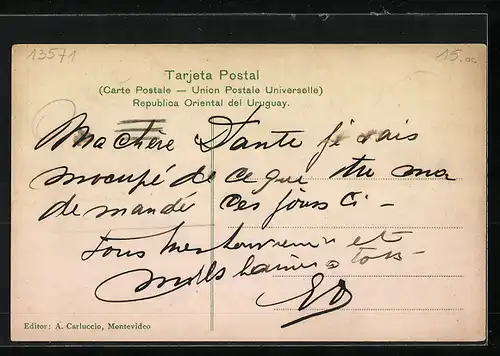 13571
15.00
Tarjeta Postal
(Carte Postale — Union Postale Universelle)
Republica Oriental del Uruguay.
Ma chère Dante je vais
m'occupé de ce que tu ma
demandé ces jours ci —
Tous et
mills
Editor: A. Carluccio, Montevideo